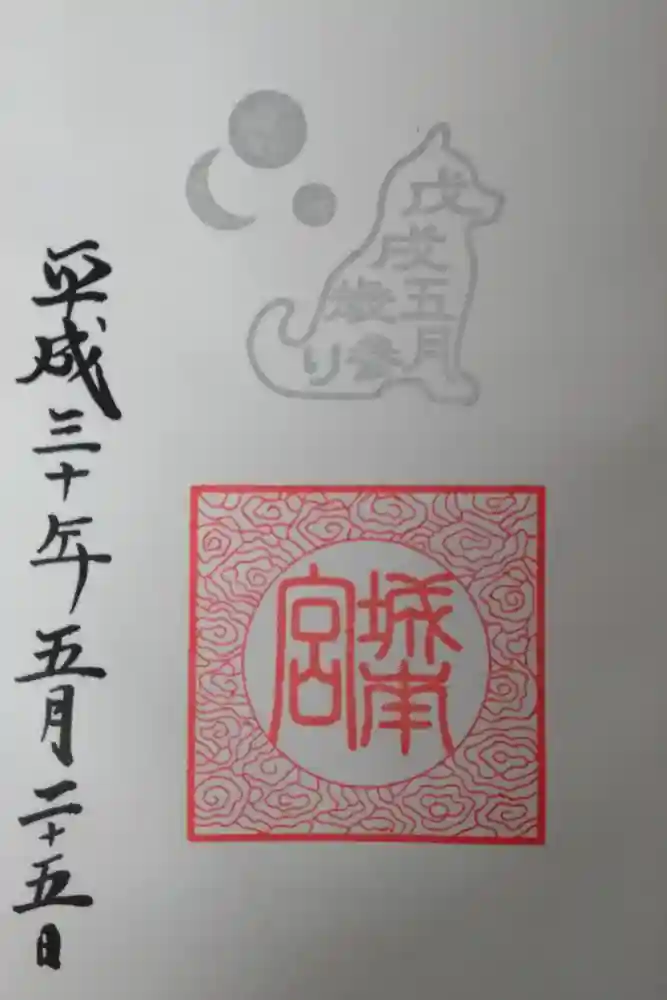 戊戌五月
歳参り
城南
宮
平成三十年五月二十五日